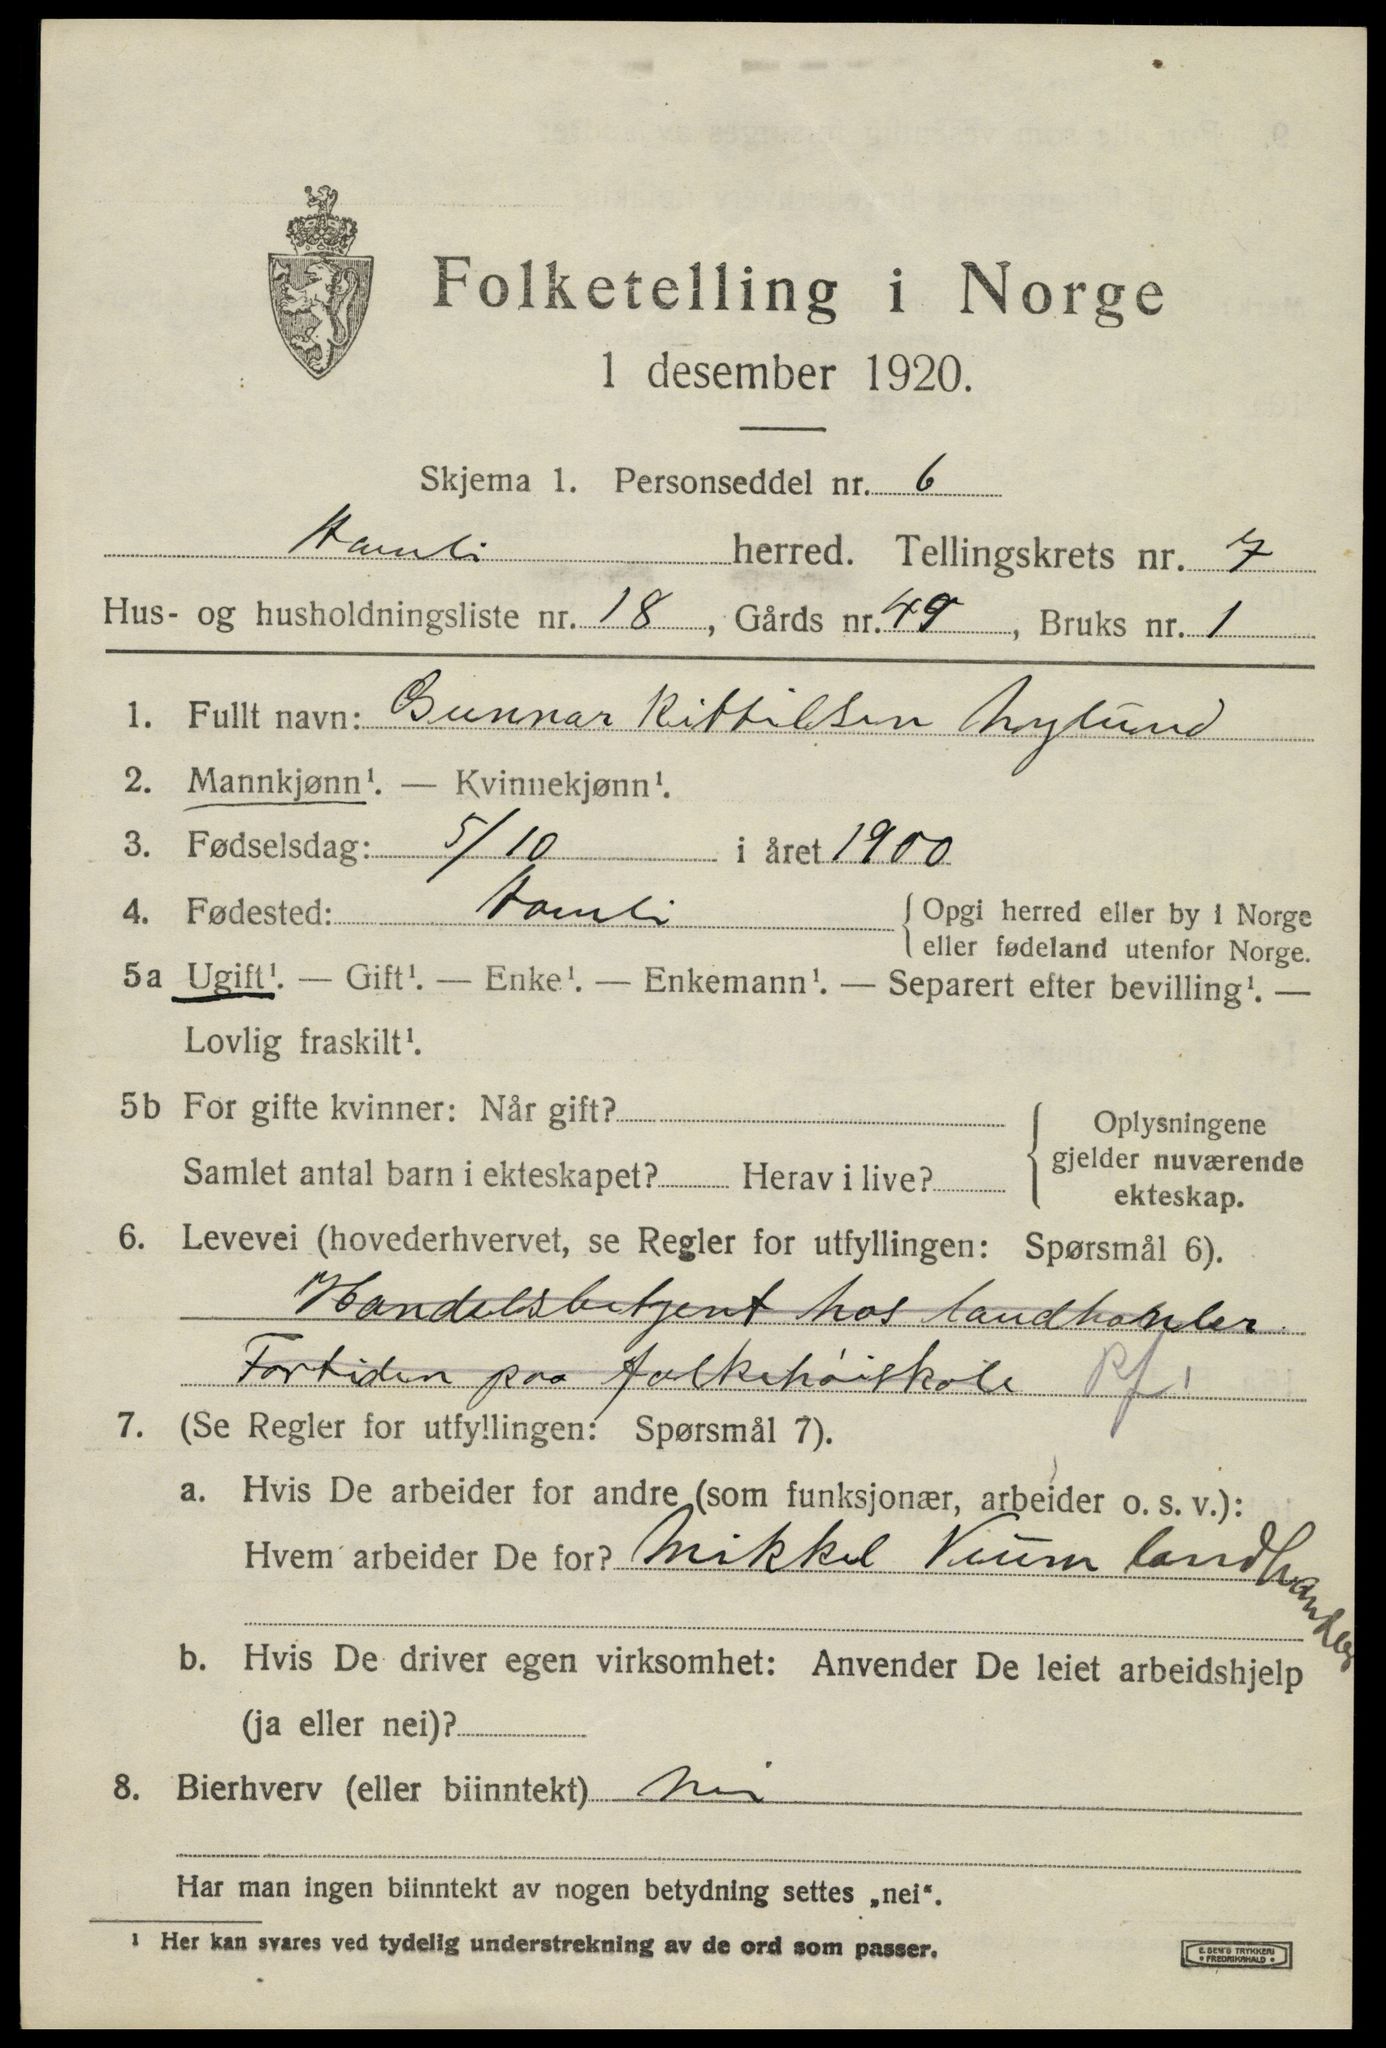 Folketelling i Norge
1 desember 1920.
Skjema 1. Personseddel nr. 6
Åamli herred. Tellingskrets nr. 7
Hus- og husholdningsliste nr. 18, Gårds nr. 49, Bruks nr. 1
1. Fullt navn: Gunnar Kittilsen Nylund
2. Mannkjønn¹. — Kvinnekjønn¹.
3. Fødselsdag: 5/10 i året 1900
4. Fødested: Åamli {Opgi herred eller by i Norge
eller fødeland utenfor Norge.
5a Ugift¹. — Gift¹. — Enke¹. — Enkemann¹. — Separert efter bevilling¹. —
Lovlig fraskilt¹.
5b For gifte kvinner: Når gift?
Samlet antal barn i ekteskapet? Herav i live?
Oplysningene
gjelder nuværende
ekteskap.
6. Levevei (hovederhvervet, se Regler for utfyllingen: Spørsmål 6).
Handelsbetjent hos landhanler
Fortiden paa folkehöiskole Pf 1
7. (Se Regler for utfyllingen: Spørsmål 7).
a. Hvis De arbeider for andre (som funksjonær, arbeider o. s. v.):
Hvem arbeider De for? Mikkel Veum landhandler
b. Hvis De driver egen virksomhet: Anvender De leiet arbeidshjelp
(ja eller nei)?
8. Bierhverv (eller biinntekt) nei
Har man ingen biinntekt av nogen betydning settes „nei“.
¹ Her kan svares ved tydelig understrekning av de ord som passer.
E. SEM'S TRYKKERI
• FREDRIKSHALD •